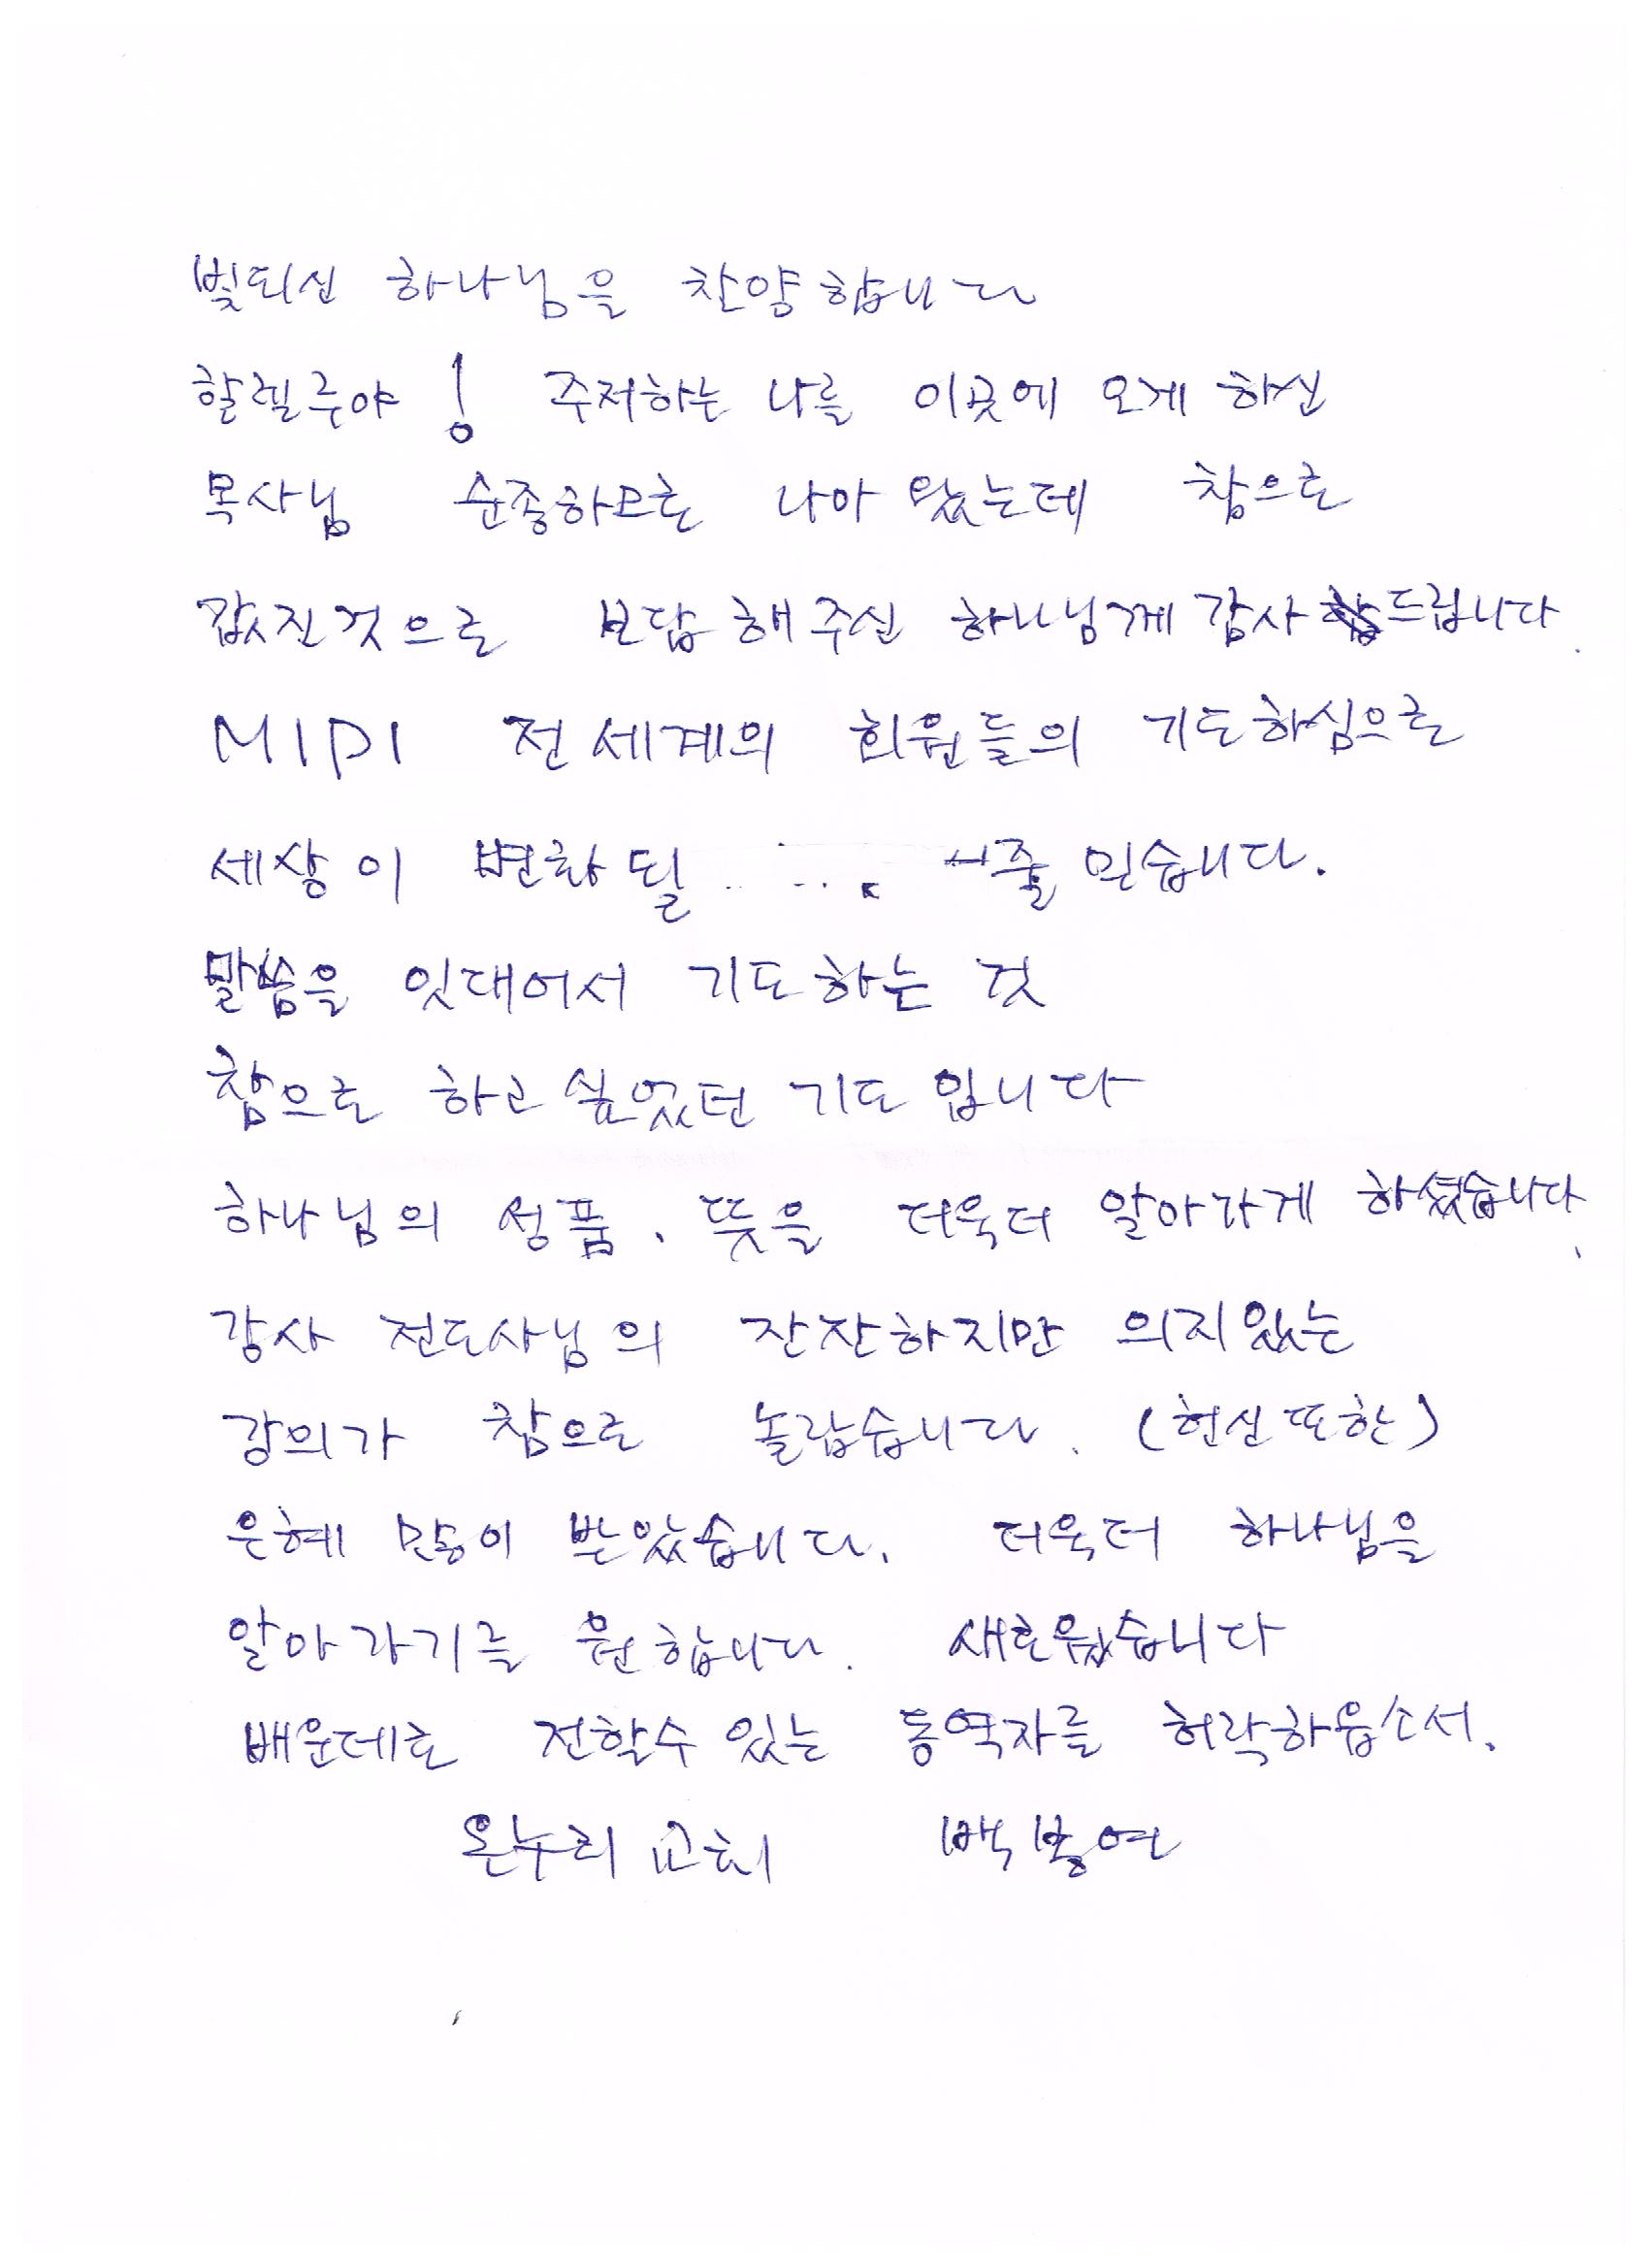 빛되신 하나님을 찬양합니다
할렐루야! 주저하는 나를 이곳에 오게 하신
목사님 순종하므로 나아 왔는데 참으로
값진것으로 보답해주신 하나님께 감사드립니다.
MIPI 전세계의 회원들의 기도하심으로
세상이 변화될 줄 믿습니다.
말씀을 잇대어서 기도하는 것
참으로 하고싶었던 기도입니다
하나님의 성품, 뜻을 더욱더 알아가게 하셨습니다.
강사 전도사님의 잔잔하지만 의지있는
강의가 참으로 놀랍습니다. (헌신또한)
은혜 많이 받았습니다. 더욱더 하나님을
알아가기를 원합니다. 새로웠습니다
배운데로 전할수 있는 동역자를 허락하옵소서.
온누리교회 백봉연